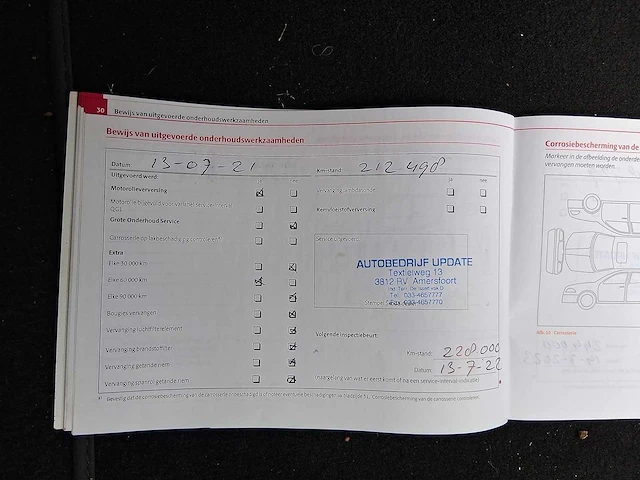 30 Bewijs van uitgevoerde onderhoudswerkzaamheden
Bewijs van uitgevoerde onderhoudswerkzaamheden
Datum: 13-07-21
Km-stand: 212 498
Uitgevoerd werd:
ja nee
Motorolieverversing
Motorolie bijgevuld voor variabel service-interval
QG1
Grote Onderhoud Service
Carrosserie op lakbeschadiging
Extra
Elke 30 000 km
Elke 60 000 km
Elke 90 000 km
Bougies vervangen
Vervanging luchtfilterelement
Vervanging brandstoffilter
Vervanging getande riem
Vervanging spanrol getande riem
Remvloeistofverversing
Service uitgevoerd:
AUTOBEDRIJF UPDATE
Textielweg 13
3812 RV Amersfoort
Tel. 033-4657777
Fax 033-4657770
Volgende inspectiebeurt:
Km-stand: 228 000
Datum: 13-7-22
Corrosiebescherming van de
Markeer in de afbeelding de onderde
vervangen moeten worden.
Carrosserie